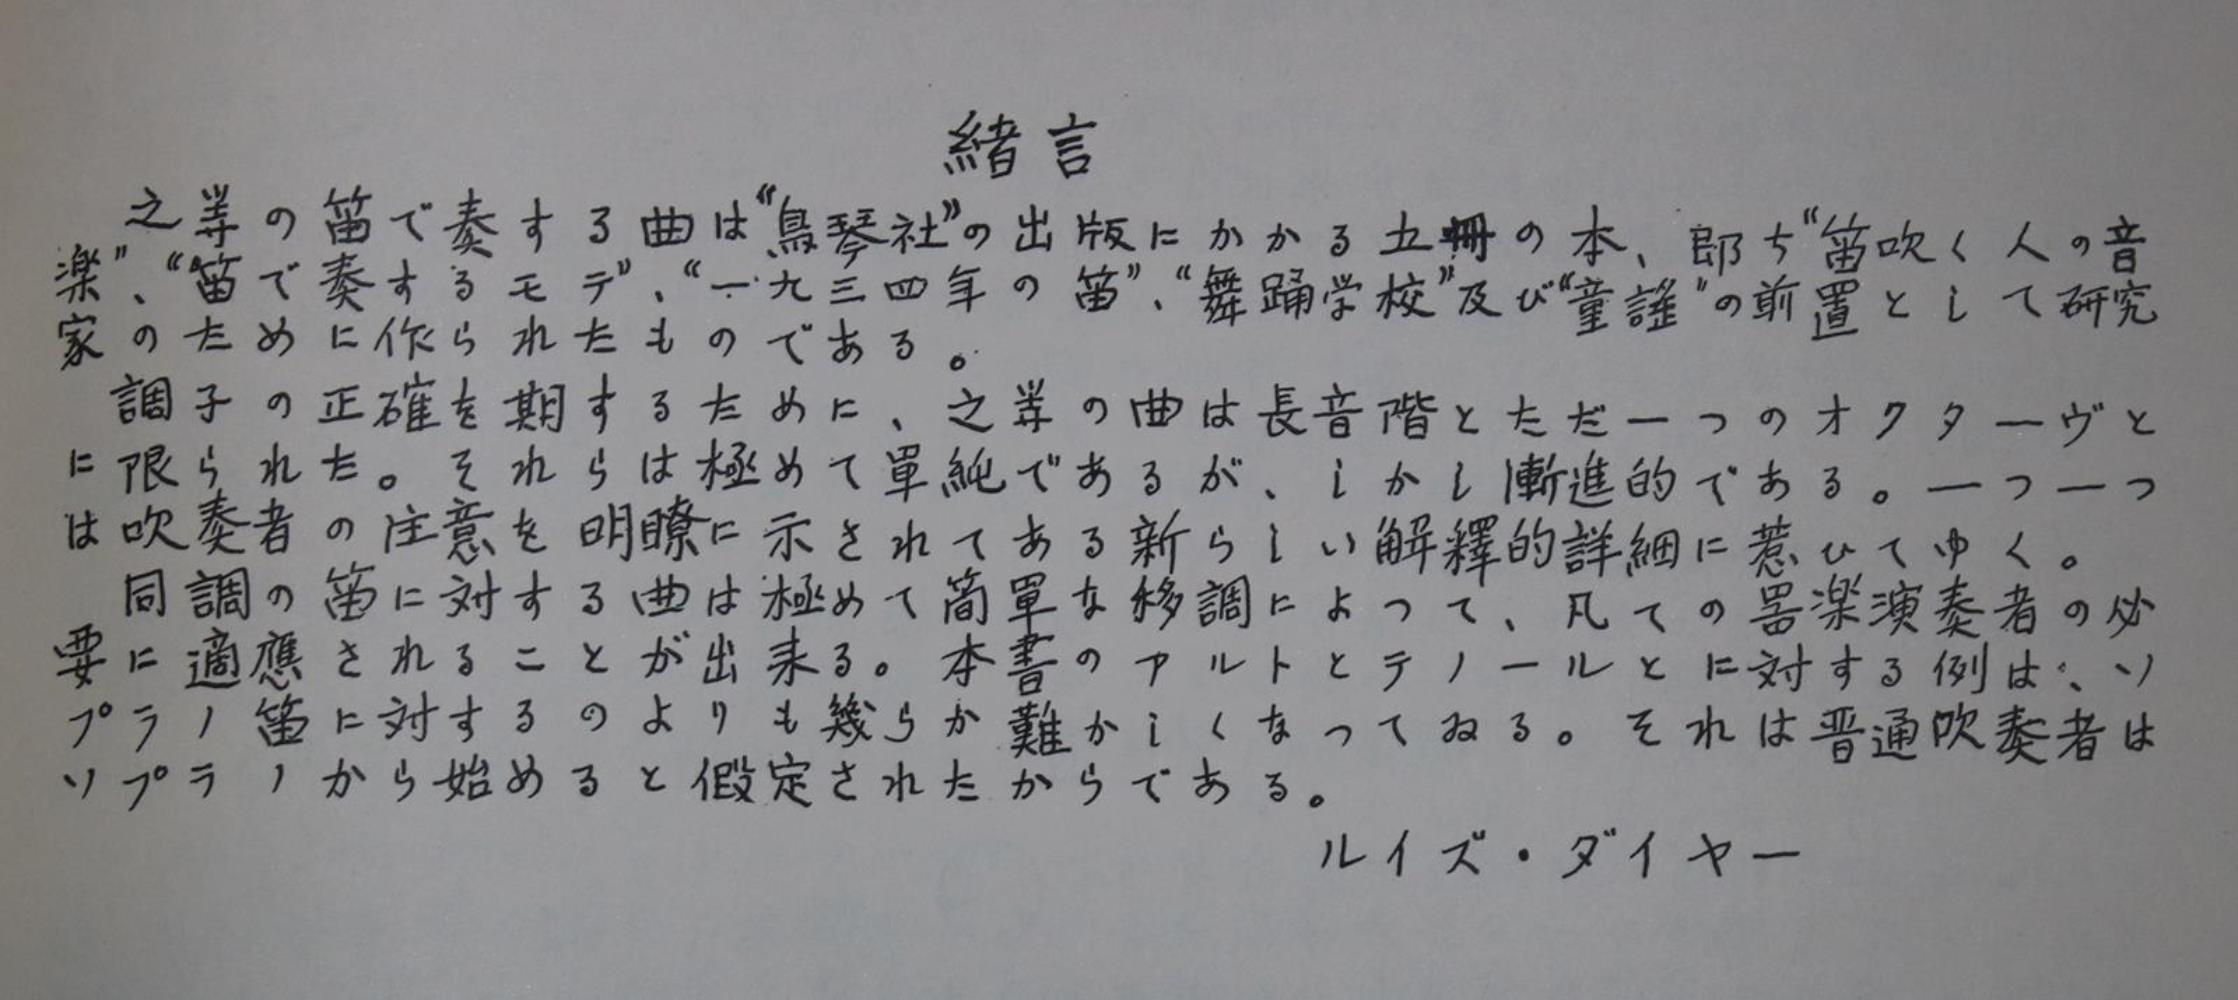 緒言
之等の笛で奏する曲は“鳥琴社”の出版にかかる五冊の本、郎ち“笛吹く人の音
楽”、“笛で奏するモテ”、“一九三四年の笛”、“舞踊学校”及び“童謡”の前置として研究
家のために作られたものである。
調子の正確を期するために、之等の曲は長音階とただ一つのオクターヴと
に限られた。それらは極めて單純であるが、しかし漸進的である。一つ一つ
は吹奏者の注意を明瞭に示されてある新らしい解釋的詳細に惹ひてゆく。
同調の笛に対する曲は極めて簡單な移調によって、凡ての器楽演奏者の必
要に適應されることが出来る。本書のアルトとテノールとに対する例は、ソ
プラノ笛に対するのよりも幾らか難かしくなってゐる。それは普通吹奏者は
ソプラノから始めると假定されたからである。
ルイズ・ダイヤー